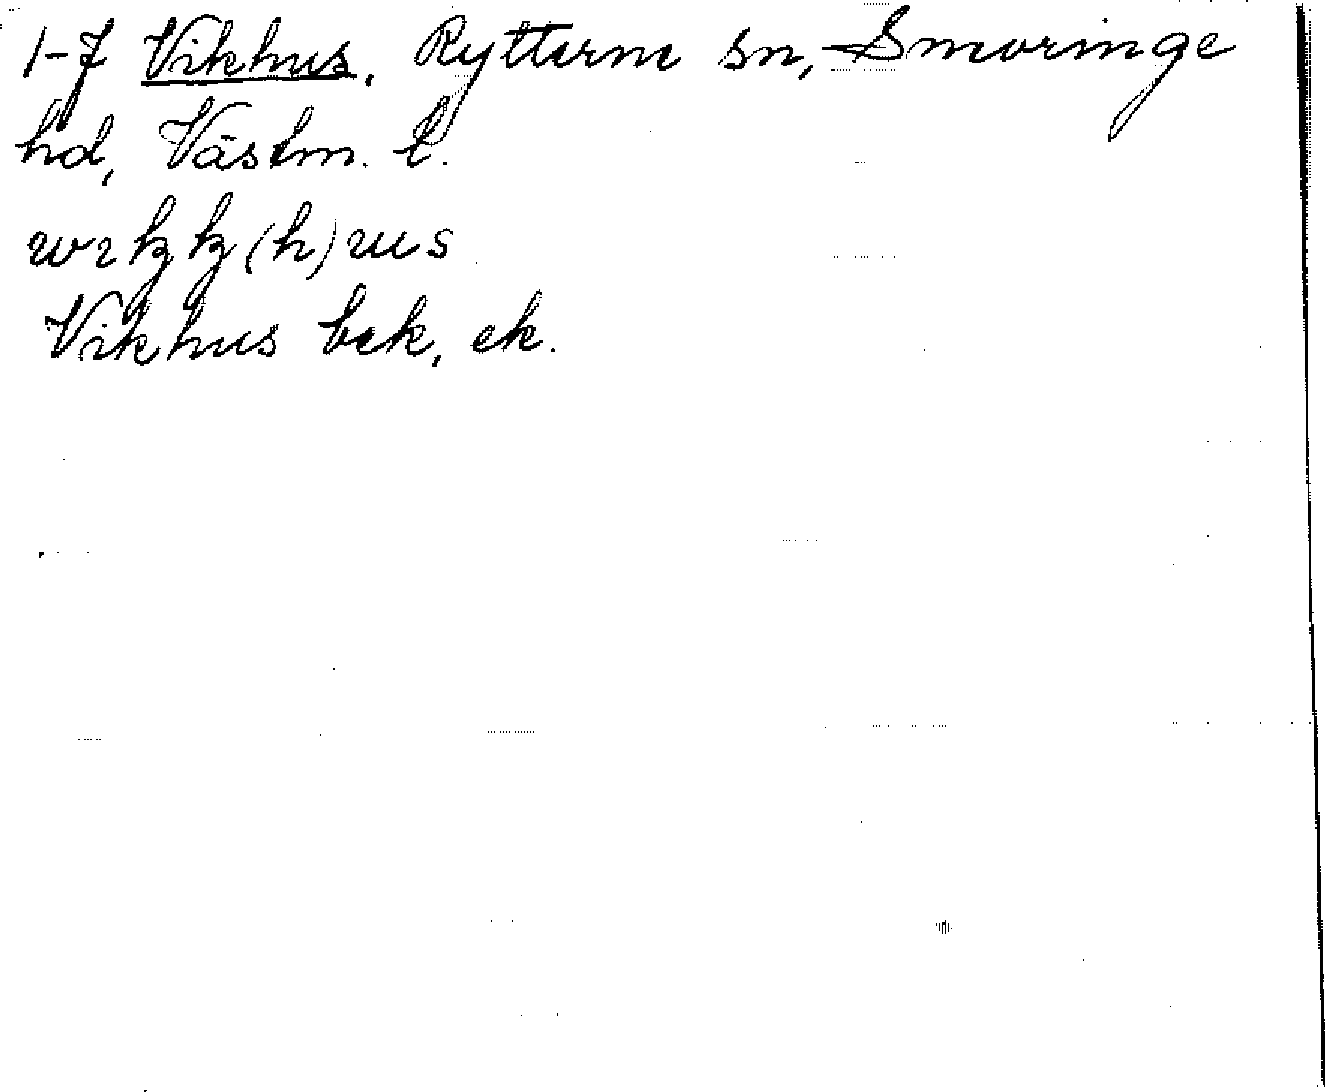 1-7 Vikhus, Rytterne sn, Snevringe
hd, Västm. l.
(h)us
Vikhus bek, ek.